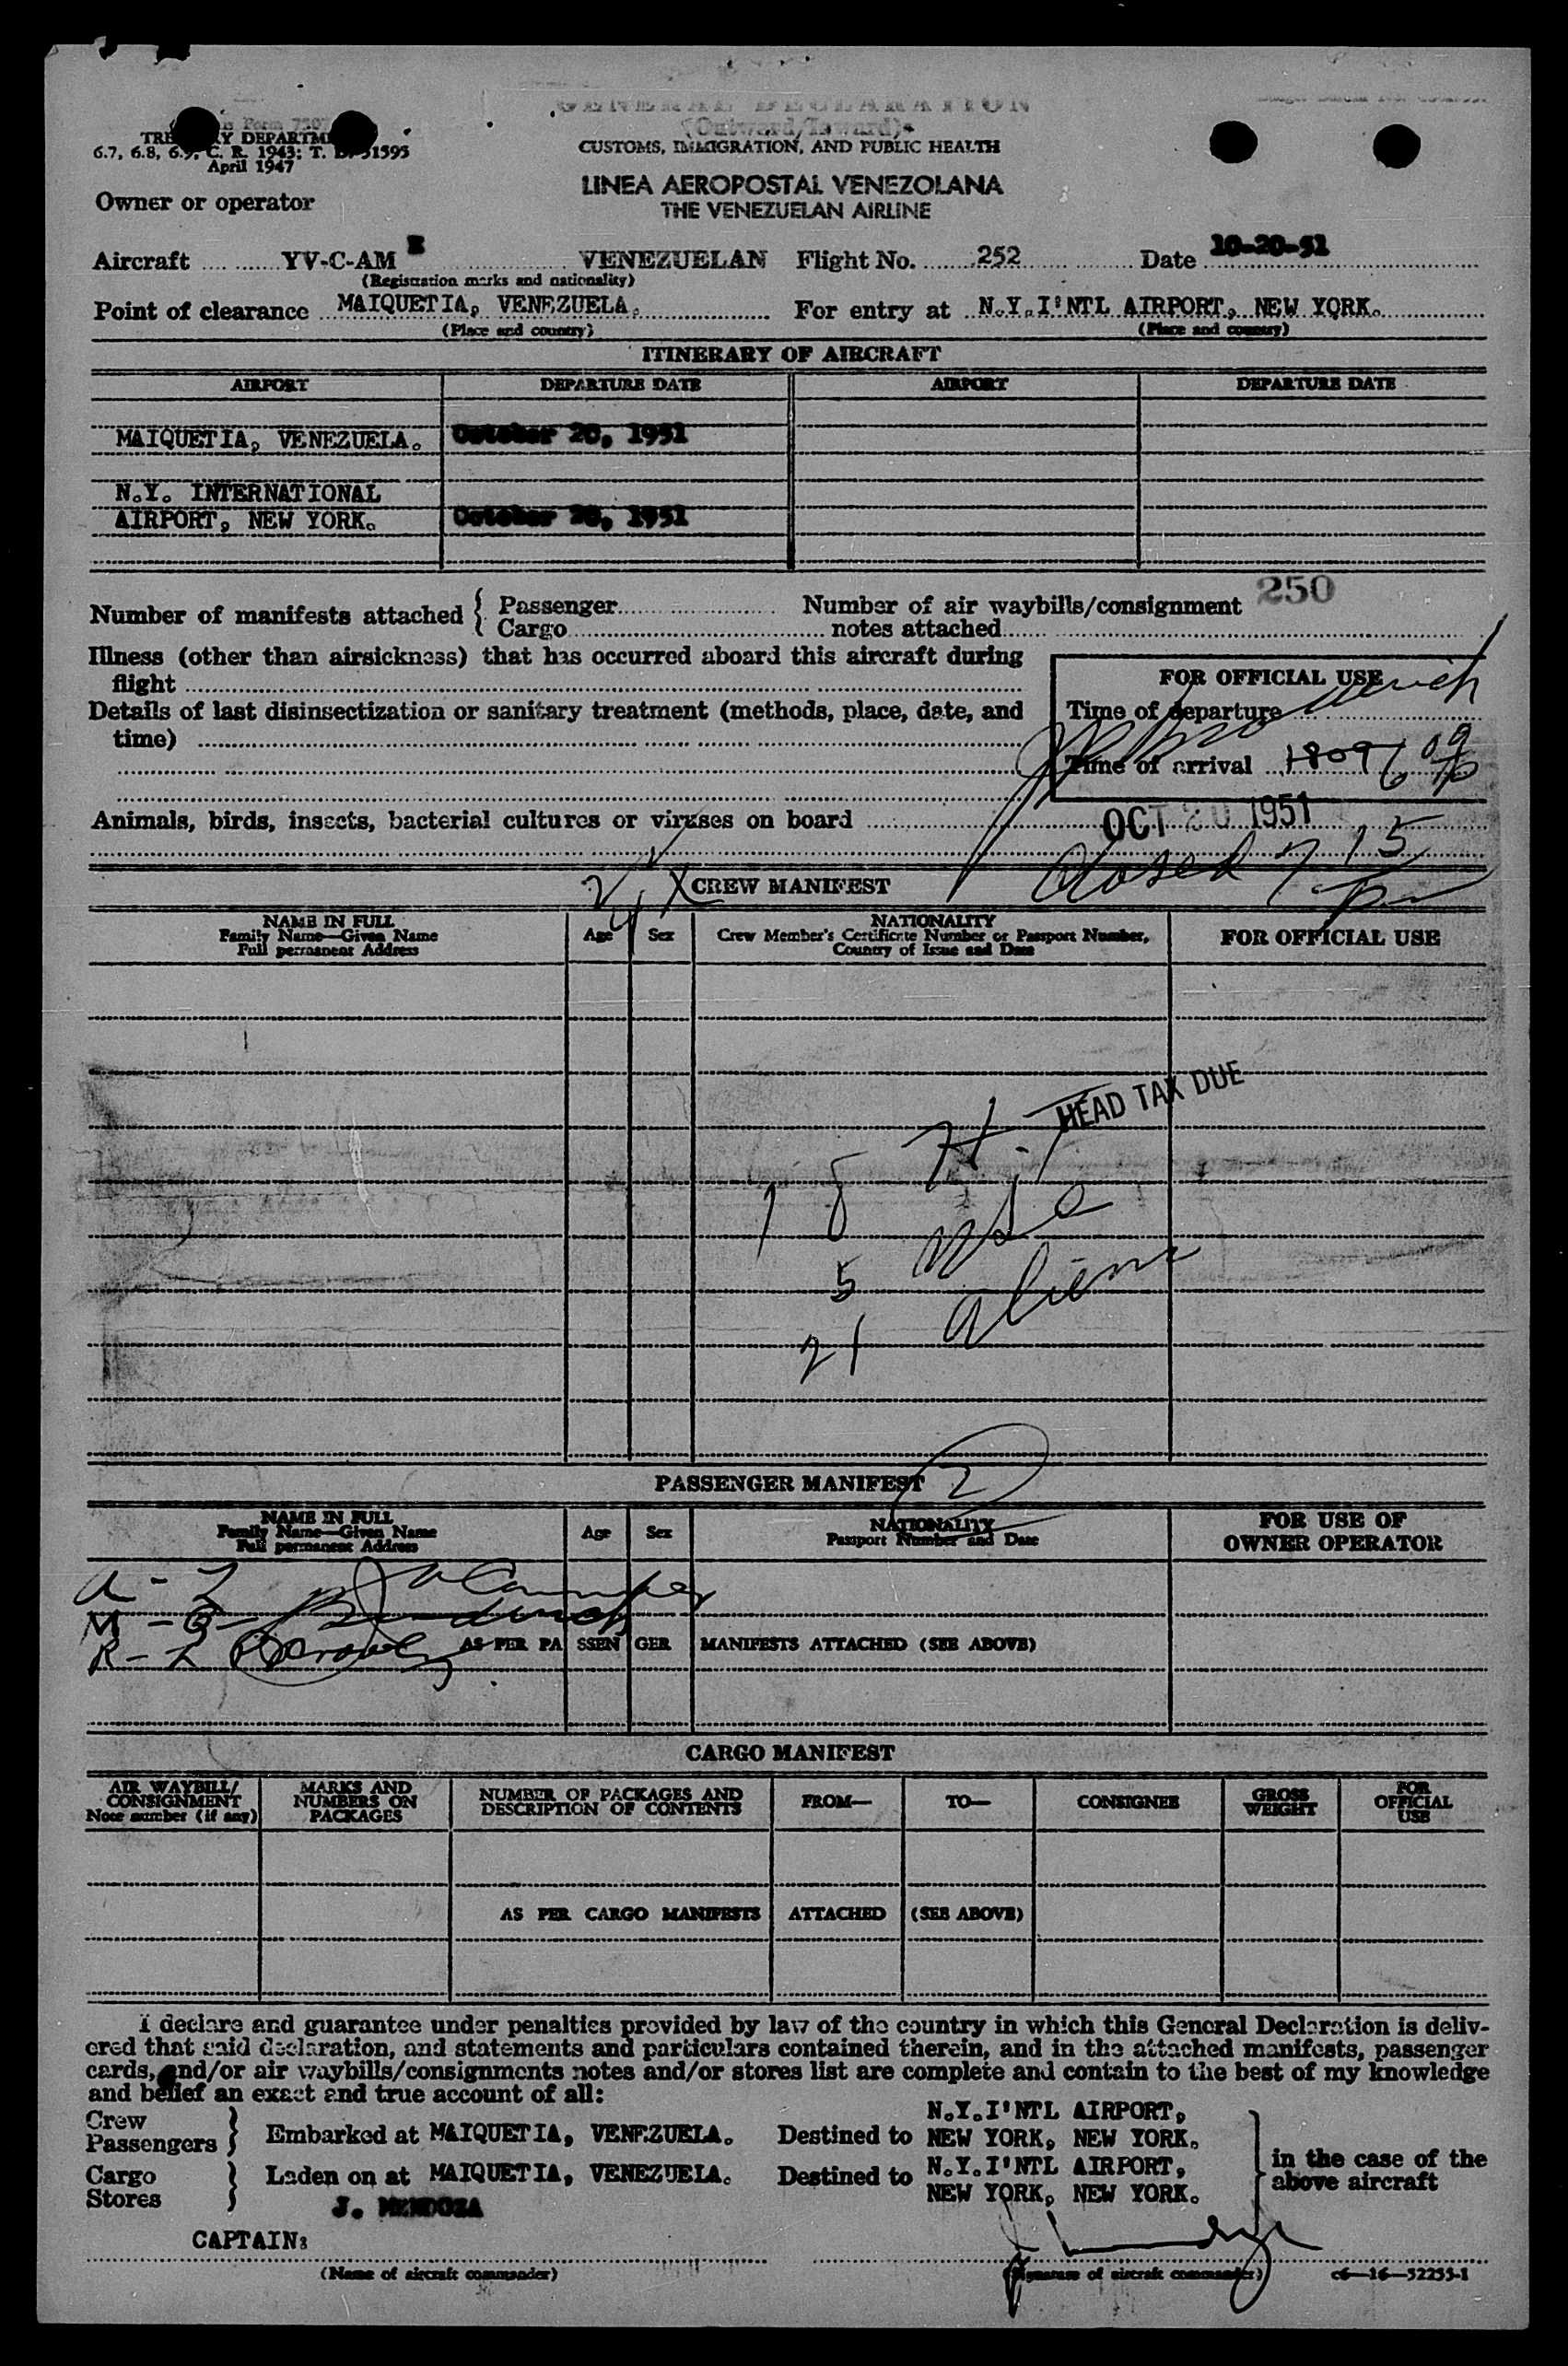 GENERAL DECLARATION
(Outward/Inward)
TREASURY DEPARTMENT
6.7, 6.8, 6.9, C. R. 1943; T. D. 51595
April 1947
CUSTOMS, IMMIGRATION, AND PUBLIC HEALTH
LINEA AEROPOSTAL VENEZOLANA
THE VENEZUELAN AIRLINE
Owner or operator
Aircraft YV-C-AM E VENEZUELAN Flight No. 252 Date 10-20-51
(Registration marks and nationality)
Point of clearance MAIQUETIA, VENEZUELA. For entry at N.Y.I'NTL AIRPORT, NEW YORK.
(Place and country) (Place and country)
ITINERARY OF AIRCRAFT
AIRPORT DEPARTURE DATE AIRPORT DEPARTURE DATE
MAIQUETIA, VENEZUELA. October 20, 1951
N.Y. INTERNATIONAL
AIRPORT, NEW YORK. October 20, 1951
250
Number of manifests attached { Passenger Number of air waybills/consignment
Cargo notes attached
Illness (other than airsickness) that has occurred aboard this aircraft during
flight
FOR OFFICIAL USE
Details of last disinsectization or sanitary treatment (methods, place, date, and
time)
Time of departure
Time of arrival 1809 6 09
Animals, birds, insects, bacterial cultures or viruses on board
OCT 20 1951
Closed 7 15
CREW MANIFEST
NAME IN FULL
Family Name—Given Name
Full permanent Address
Age Sex
NATIONALITY
Crew Member's Certificate Number or Passport Number,
Country of Issue and Date
FOR OFFICIAL USE
HEAD TAX DUE
18 H.T
5 USC
21 aliens
2
PASSENGER MANIFEST
NAME IN FULL
Family Name—Given Name
Full permanent Address
Age Sex
NATIONALITY
Passport Number and Date
FOR USE OF
OWNER OPERATOR
AS PER PASSENGER MANIFESTS ATTACHED (SEE ABOVE)
CARGO MANIFEST
AIR WAYBILL/
CONSIGNMENT
Note number (if any)
MARKS AND
NUMBERS ON
PACKAGES
NUMBER OF PACKAGES AND
DESCRIPTION OF CONTENTS
FROM— TO— CONSIGNEE
GROSS
WEIGHT
FOR
OFFICIAL
USE
AS PER CARGO MANIFESTS ATTACHED (SEE ABOVE)
I declare and guarantee under penalties provided by law of the country in which this General Declaration is deliv-
ered that said declaration, and statements and particulars contained therein, and in the attached manifests, passenger
cards, and/or air waybills/consignments notes and/or stores list are complete and contain to the best of my knowledge
and belief an exact and true account of all:
Crew
Passengers } Embarked at MAIQUETIA, VENEZUELA. Destined to N.Y.I'NTL AIRPORT,
NEW YORK, NEW YORK.
Cargo
Stores } Laden on at MAIQUETIA, VENEZUELA. Destined to N.Y.I'NTL AIRPORT,
NEW YORK, NEW YORK.
in the case of the
above aircraft
J. MENDOZA
CAPTAIN:
(Name of aircraft commander) (Signature of aircraft commander) c6—16—52255-1